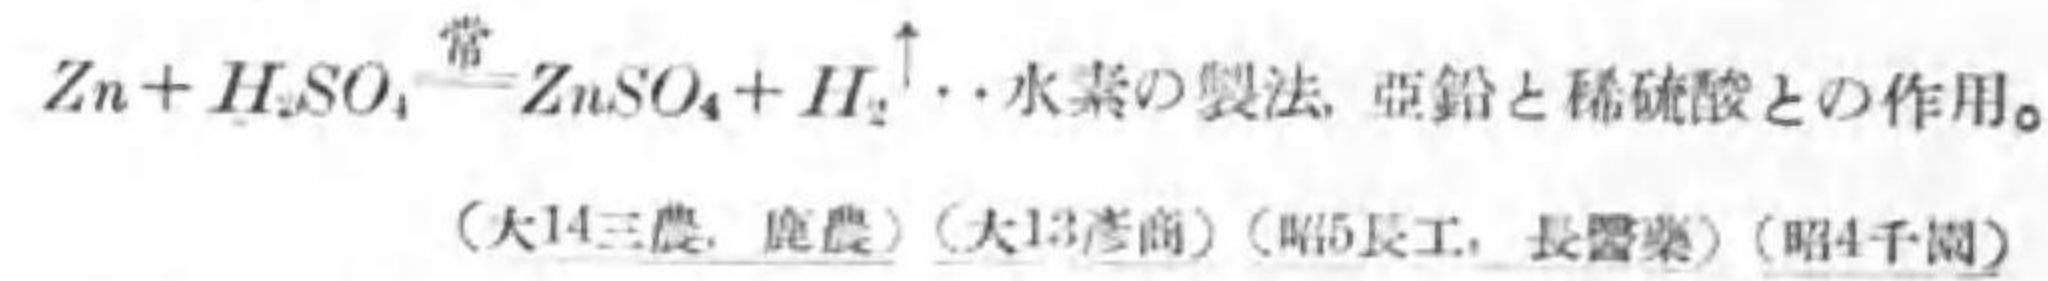 Zn + H₂SO₄ 常= ZnSO₄ + H₂↑ ‥水素の製法, 亞鉛と稀硫酸との作用。
(大14三農, 鹿農) (大13彥商) (昭5長工, 長醫藥) (昭4千園)